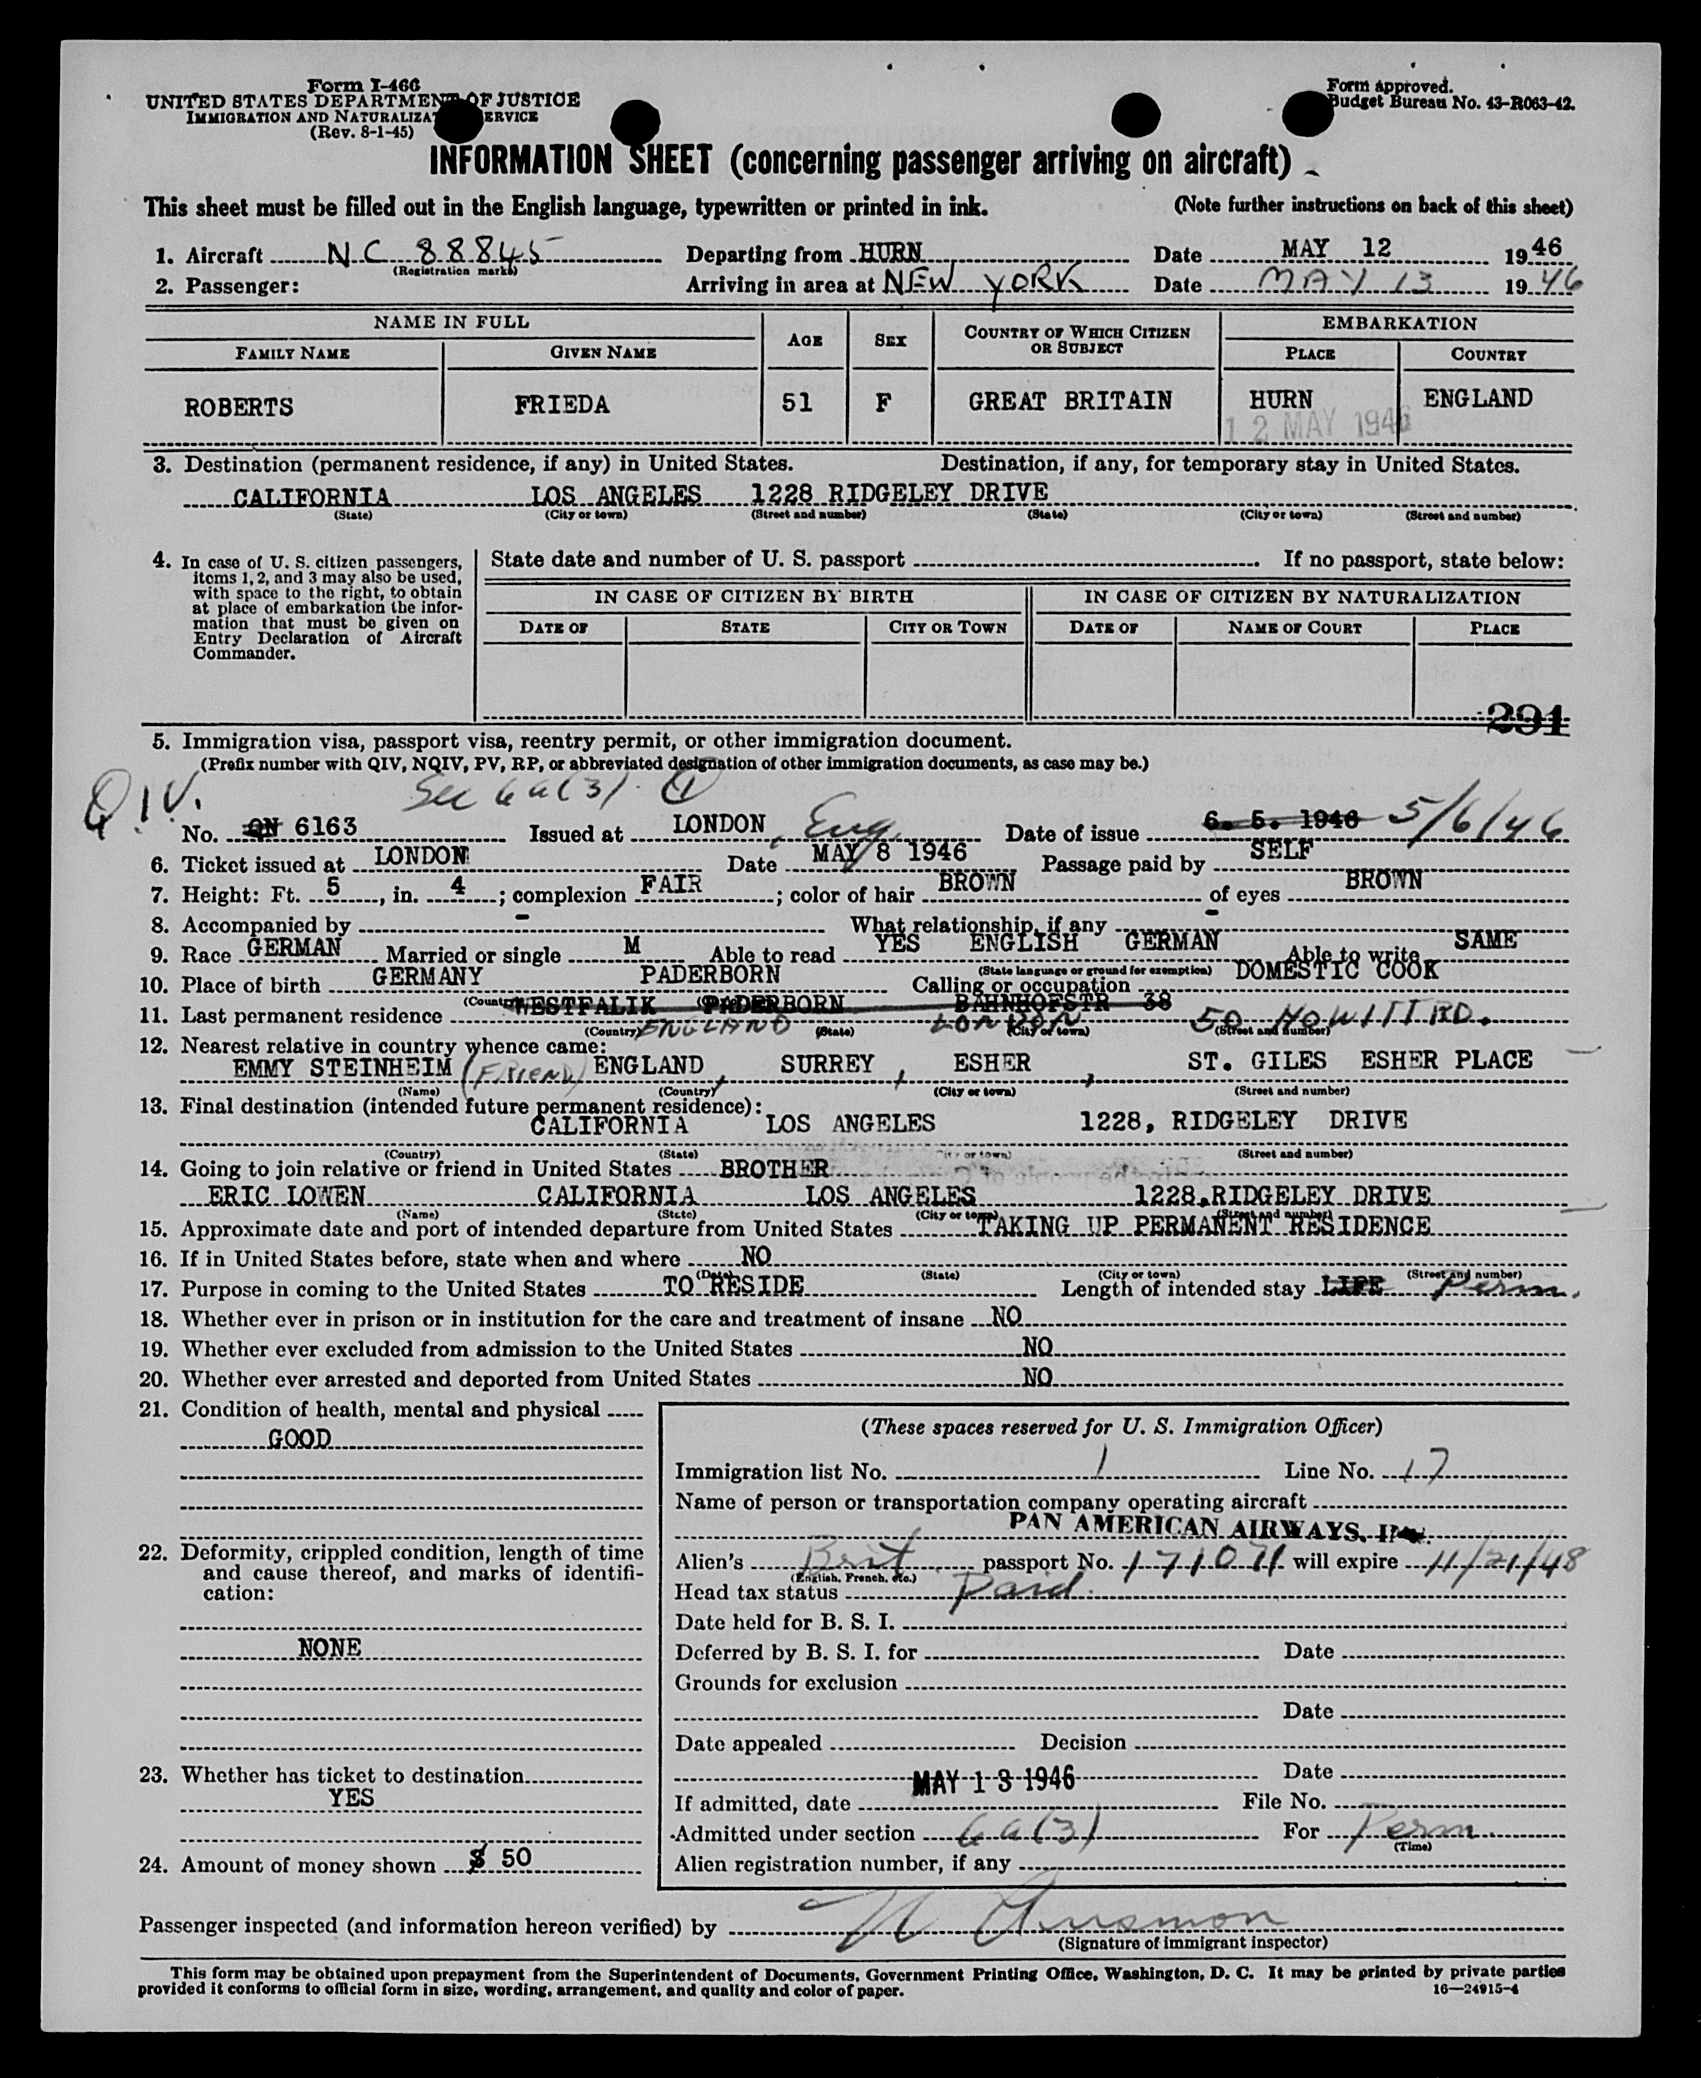 Form I-466
UNITED STATES DEPARTMENT OF JUSTICE
IMMIGRATION AND NATURALIZATION SERVICE
(Rev. 8-1-45)
Form approved.
Budget Bureau No. 43-R063-42.
INFORMATION SHEET (concerning passenger arriving on aircraft)
This sheet must be filled out in the English language, typewritten or printed in ink. (Note further instructions on back of this sheet)
1. Aircraft NC 88845 Departing from HURN Date MAY 12 1946
(Registration marks)
2. Passenger: Arriving in area at NEW YORK Date MAY 13 1946
NAME IN FULL AGE SEX COUNTRY OF WHICH CITIZEN OR SUBJECT EMBARKATION
FAMILY NAME GIVEN NAME PLACE COUNTRY
ROBERTS FRIEDA 51 F GREAT BRITAIN HURN ENGLAND
12 MAY 1946
3. Destination (permanent residence, if any) in United States. Destination, if any, for temporary stay in United States.
CALIFORNIA LOS ANGELES 1228 RIDGELEY DRIVE
(State) (City or town) (Street and number) (State) (City or town) (Street and number)
4. In case of U. S. citizen passengers,
items 1, 2, and 3 may also be used,
with space to the right, to obtain
at place of embarkation the infor-
mation that must be given on
Entry Declaration of Aircraft
Commander.
State date and number of U. S. passport If no passport, state below:
IN CASE OF CITIZEN BY BIRTH IN CASE OF CITIZEN BY NATURALIZATION
DATE OF STATE CITY OR TOWN DATE OF NAME OF COURT PLACE
291
5. Immigration visa, passport visa, reentry permit, or other immigration document.
(Prefix number with QIV, NQIV, PV, RP, or abbreviated designation of other immigration documents, as case may be.)
Q.I.V. Sec 6a(3) 1
No. QN 6163 Issued at LONDON, Eng. Date of issue 6. 5. 1946 5/6/46
6. Ticket issued at LONDON Date MAY 8 1946 Passage paid by SELF
7. Height: Ft. 5, in. 4; complexion FAIR; color of hair BROWN of eyes BROWN
8. Accompanied by - What relationship, if any -
9. Race GERMAN Married or single M Able to read YES ENGLISH GERMAN Able to write SAME
(State language or ground for exemption)
10. Place of birth GERMANY PADERBORN Calling or occupation DOMESTIC COOK
(Country)
WESTFALIK PADERBORN BAHNHOFSTR 38
11. Last permanent residence ENGLAND LONDON 50 HOWITT RD.
(Country) (State) (City or town) (Street and number)
12. Nearest relative in country whence came:
EMMY STEINHEIM (FRIEND) ENGLAND, SURREY, ESHER, ST. GILES ESHER PLACE
(Name) (Country) (City or town) (Street and number)
13. Final destination (intended future permanent residence):
CALIFORNIA LOS ANGELES 1228, RIDGELEY DRIVE
(Country) (State) (City or town) (Street and number)
14. Going to join relative or friend in United States BROTHER
ERIC LOWEN CALIFORNIA LOS ANGELES 1228, RIDGELEY DRIVE
(Name) (State) (City or town) (Street and number)
15. Approximate date and port of intended departure from United States TAKING UP PERMANENT RESIDENCE
16. If in United States before, state when and where NO
(Date) (State) (City or town) (Street and number)
17. Purpose in coming to the United States TO RESIDE Length of intended stay LIFE Perm.
18. Whether ever in prison or in institution for the care and treatment of insane NO
19. Whether ever excluded from admission to the United States NO
20. Whether ever arrested and deported from United States NO
21. Condition of health, mental and physical
GOOD
22. Deformity, crippled condition, length of time
and cause thereof, and marks of identifi-
cation:
NONE
23. Whether has ticket to destination
YES
24. Amount of money shown $ 50
(These spaces reserved for U. S. Immigration Officer)
Immigration list No. 1 Line No. 17
Name of person or transportation company operating aircraft
PAN AMERICAN AIRWAYS, INC.
Alien's Brit. passport No. 171071 will expire 11/21/48
(English, French, etc.)
Head tax status Paid.
Date held for B. S. I.
Deferred by B. S. I. for Date
Grounds for exclusion
Date
Date appealed Decision
Date
If admitted, date MAY 13 1946 File No.
Admitted under section 6a(3) For Perm.
(Time)
Alien registration number, if any
Passenger inspected (and information hereon verified) by
(Signature of immigrant inspector)
This form may be obtained upon prepayment from the Superintendent of Documents, Government Printing Office, Washington, D. C. It may be printed by private parties
provided it conforms to official form in size, wording, arrangement, and quality and color of paper. 16—24915-4